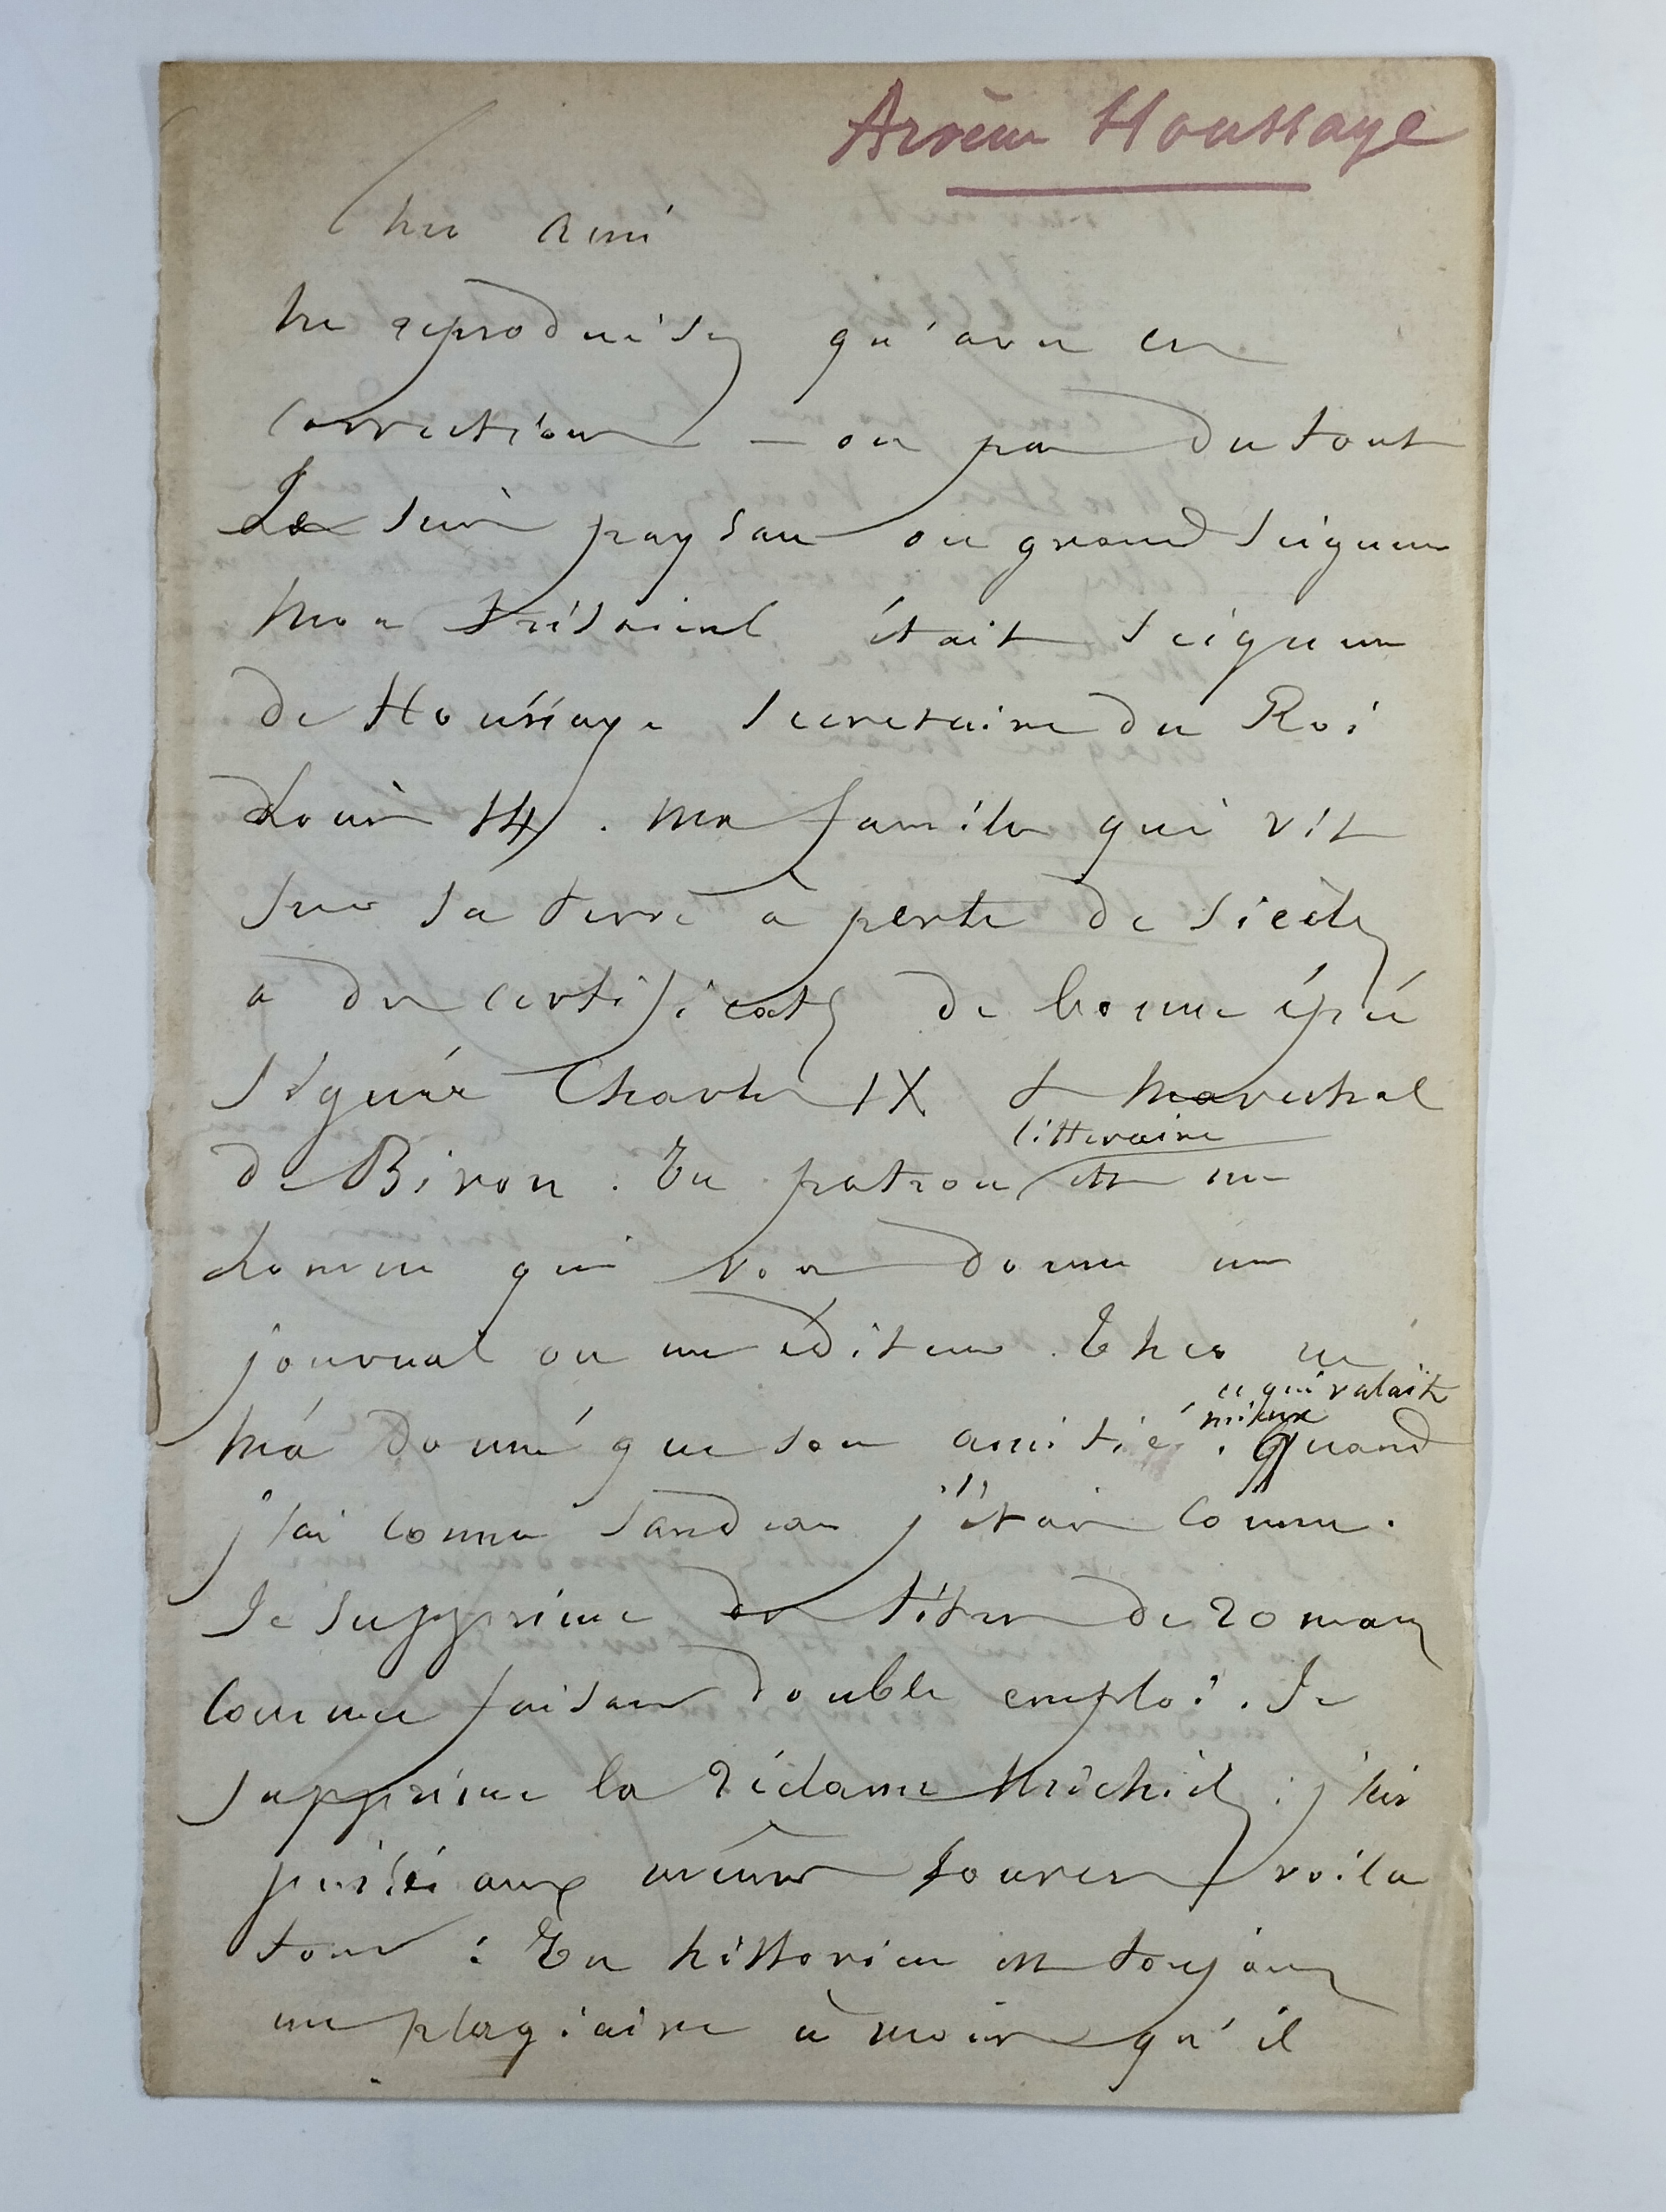 Arsène Houssaye
Cher ami
Ne reproduisez qu'avec ces
corrections — ou pas du tout
Je suis paysan ou grand seigneur
Mon trisaieul était seigneur
de Houssaye secretaire du Roi
Louis 14. Ma famille qui vit
sur sa terre à perte de siècles
a des certificats de bonne épée
signés Charles IX & Marechal
de Biron. Un patron litteraire est un
homme qui vous donne un
journal ou un éditeur. Théo ne
m'a donné que son amitié ce qui valait
mieux. Quand
j'ai connu Sandeau j'étais connu.
Je supprime des titres de romans
comme faisant double emploi. Je
supprime la réclame Michiels : j'ai
puisé aux mêmes sources voila
tout : Un historien est toujours
un plagiaire à moins qu'il